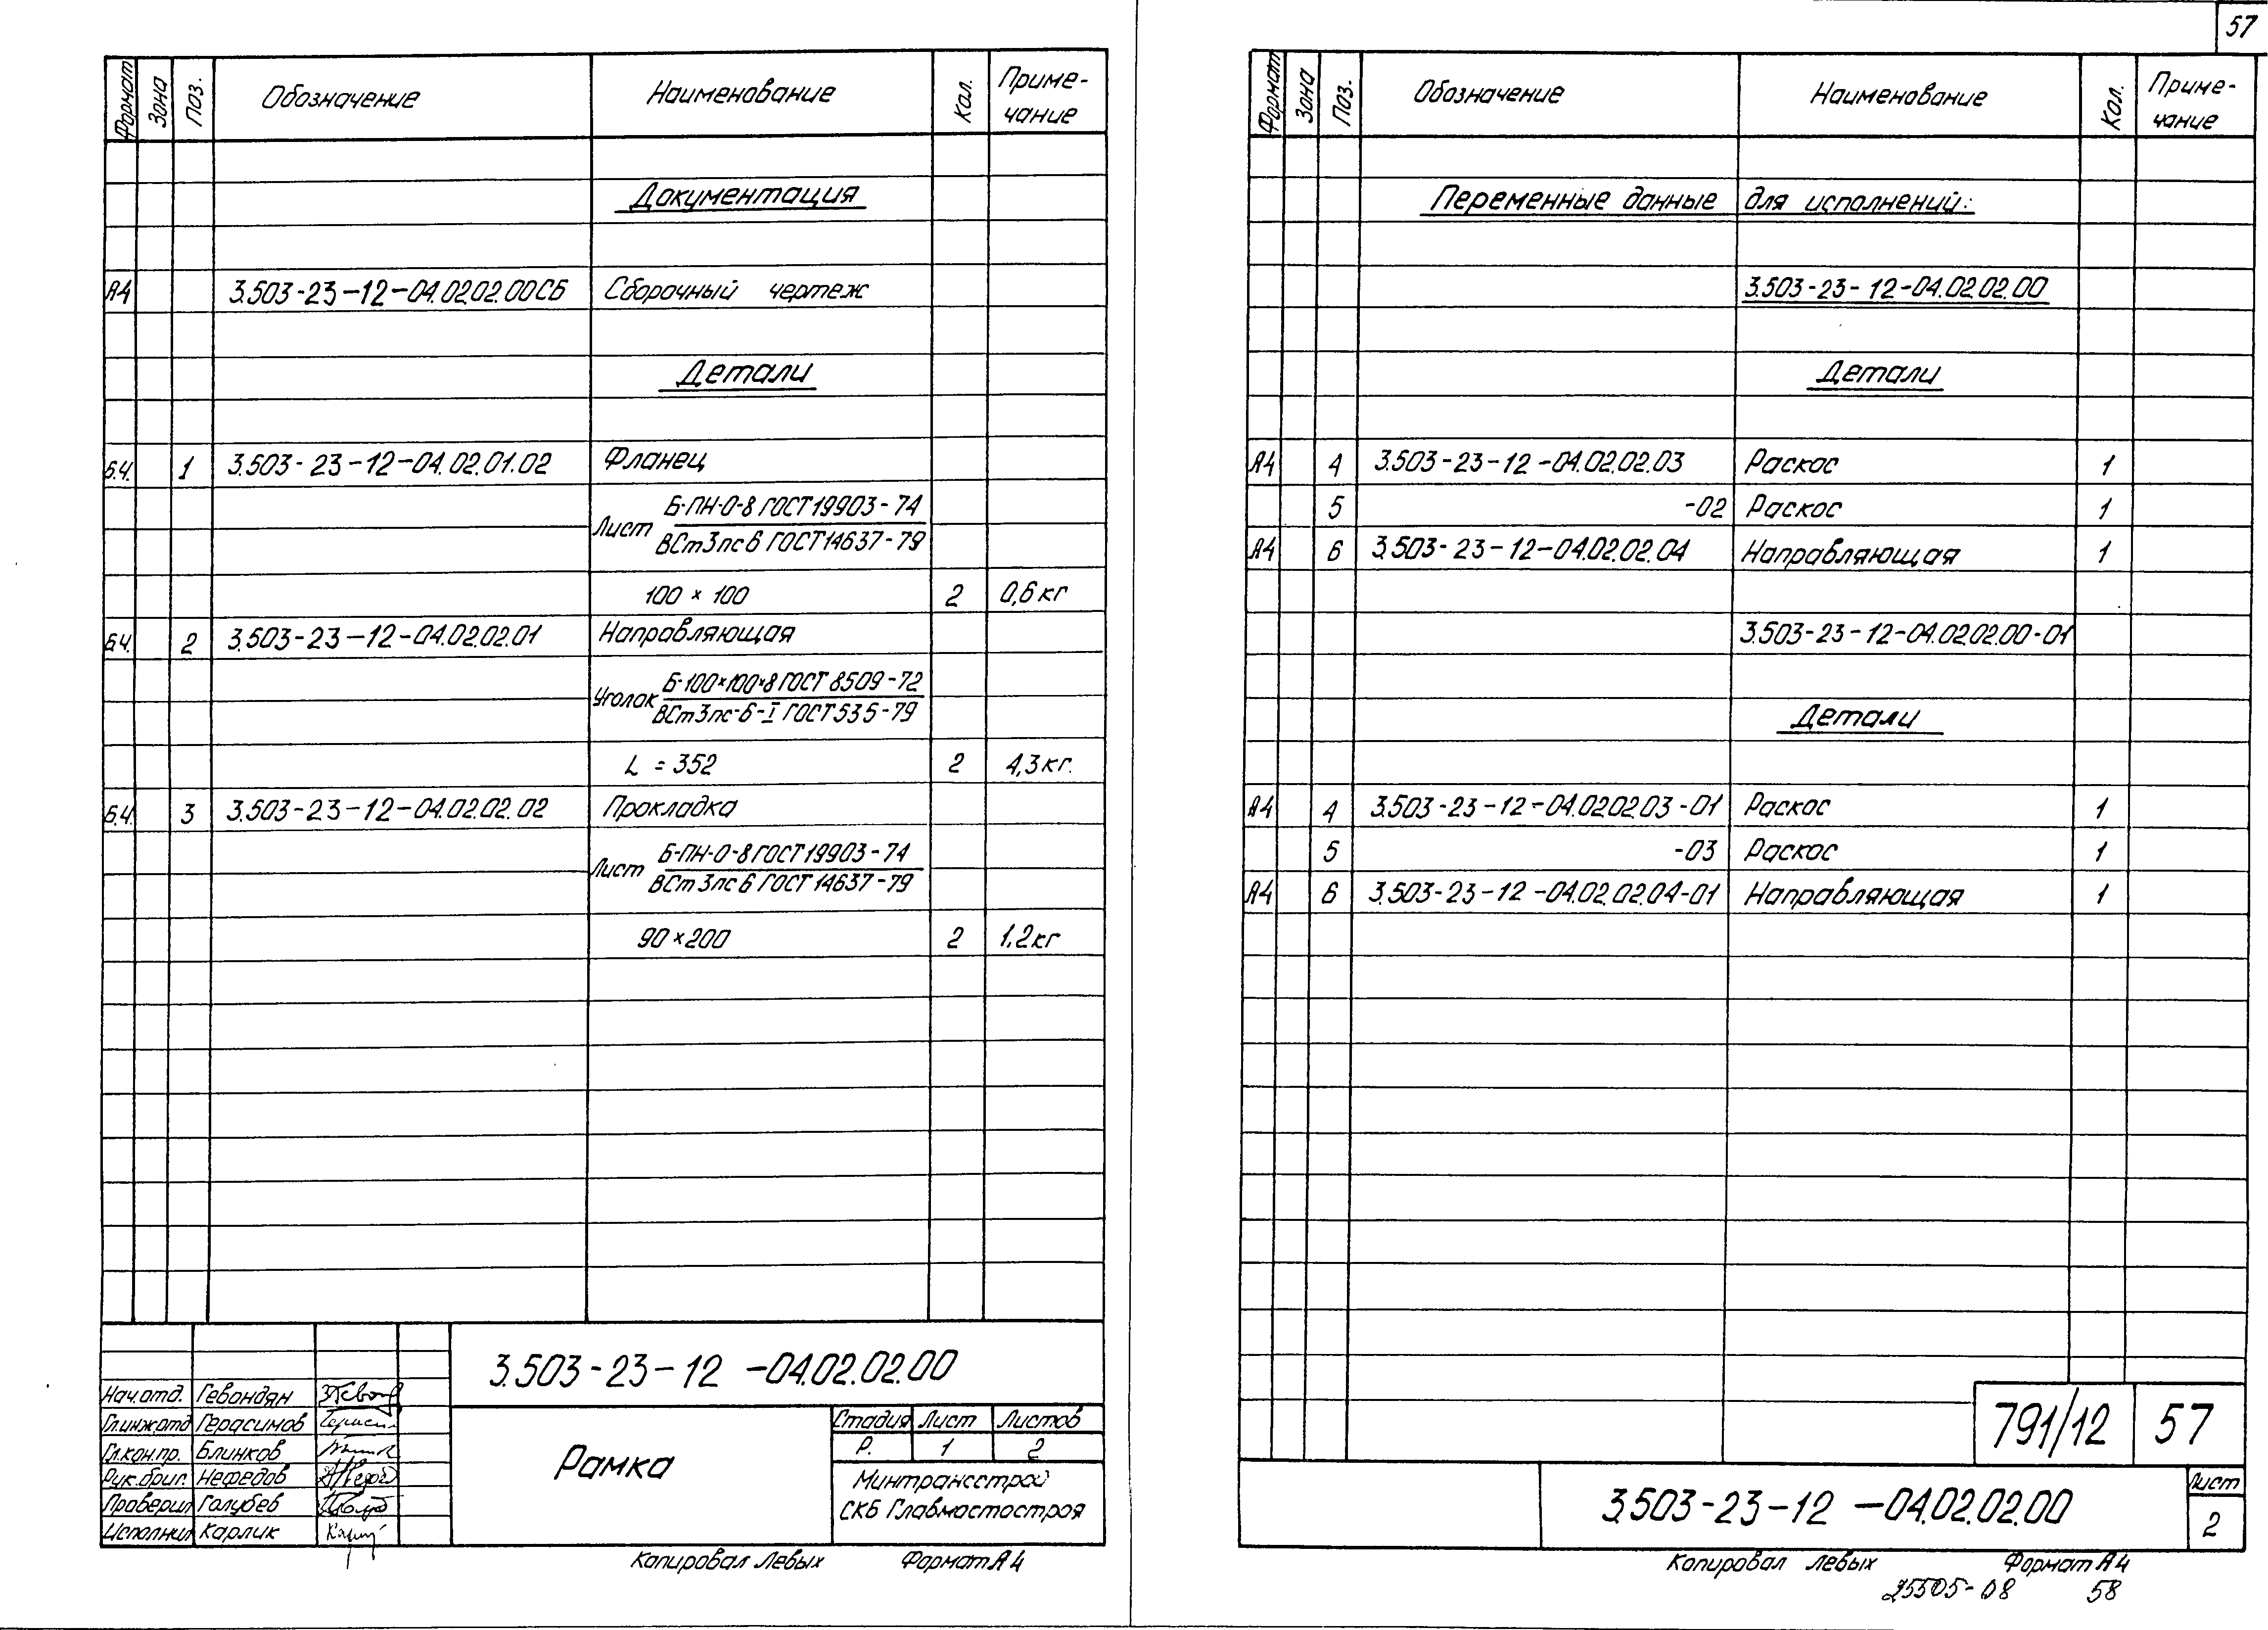 57
Формат Зона Поз. Обозначение Наименование Кол. Приме-
чание
Документация
А4 3.503-23-12-04.02.02.00СБ Сборочный чертеж
Детали
Б.Ч. 1 3.503-23-12-04.02.01.02 Фланец
Лист Б-ПН-О-8 ГОСТ 19903-74
ВСт3пс6 ГОСТ 14637-79
100 × 100 2 0,6 кг
Б.Ч. 2 3.503-23-12-04.02.02.01 Направляющая
Уголок Б-100×100×8 ГОСТ 8509-72
ВСт3пс-6-I ГОСТ 535-79
L = 352 2 4,3 кг.
Б.Ч. 3 3.503-23-12-04.02.02.02 Прокладка
Лист Б-ПН-О-8 ГОСТ 19903-74
ВСт3пс6 ГОСТ 14637-79
90 × 200 2 1.2 кг
3.503-23-12 -04.02.02.00
Нач.отд. Гевондян
Гл.инж.отд Герасимов
Гл.кон.пр. Блинков
Рук.бриг. Нефедов
Проверил Голубев
Исполнил Карлик
Рамка
Стадия Лист Листов
Р. 1 2
Минтрансстрой
СКБ Главмостостроя
Копировал Левых Формат А4
Формат Зона Поз. Обозначение Наименование Кол. Приме-
чание
Переменные данные для исполнений:
3.503-23-12-04.02.02.00
Детали
А4 4 3.503-23-12-04.02.02.03 Раскос 1
5 -02 Раскос 1
А4 6 3.503-23-12-04.02.02.04 Направляющая 1
3.503-23-12-04.02.02.00-01
Детали
А4 4 3.503-23-12-04.02.02.03-01 Раскос 1
5 -03 Раскос 1
А4 6 3.503-23-12-04.02.02.04-01 Направляющая 1
791/12 57
3.503-23-12 -04.02.02.00
Лист
2
Копировал Левых Формат А4
25505-08 58